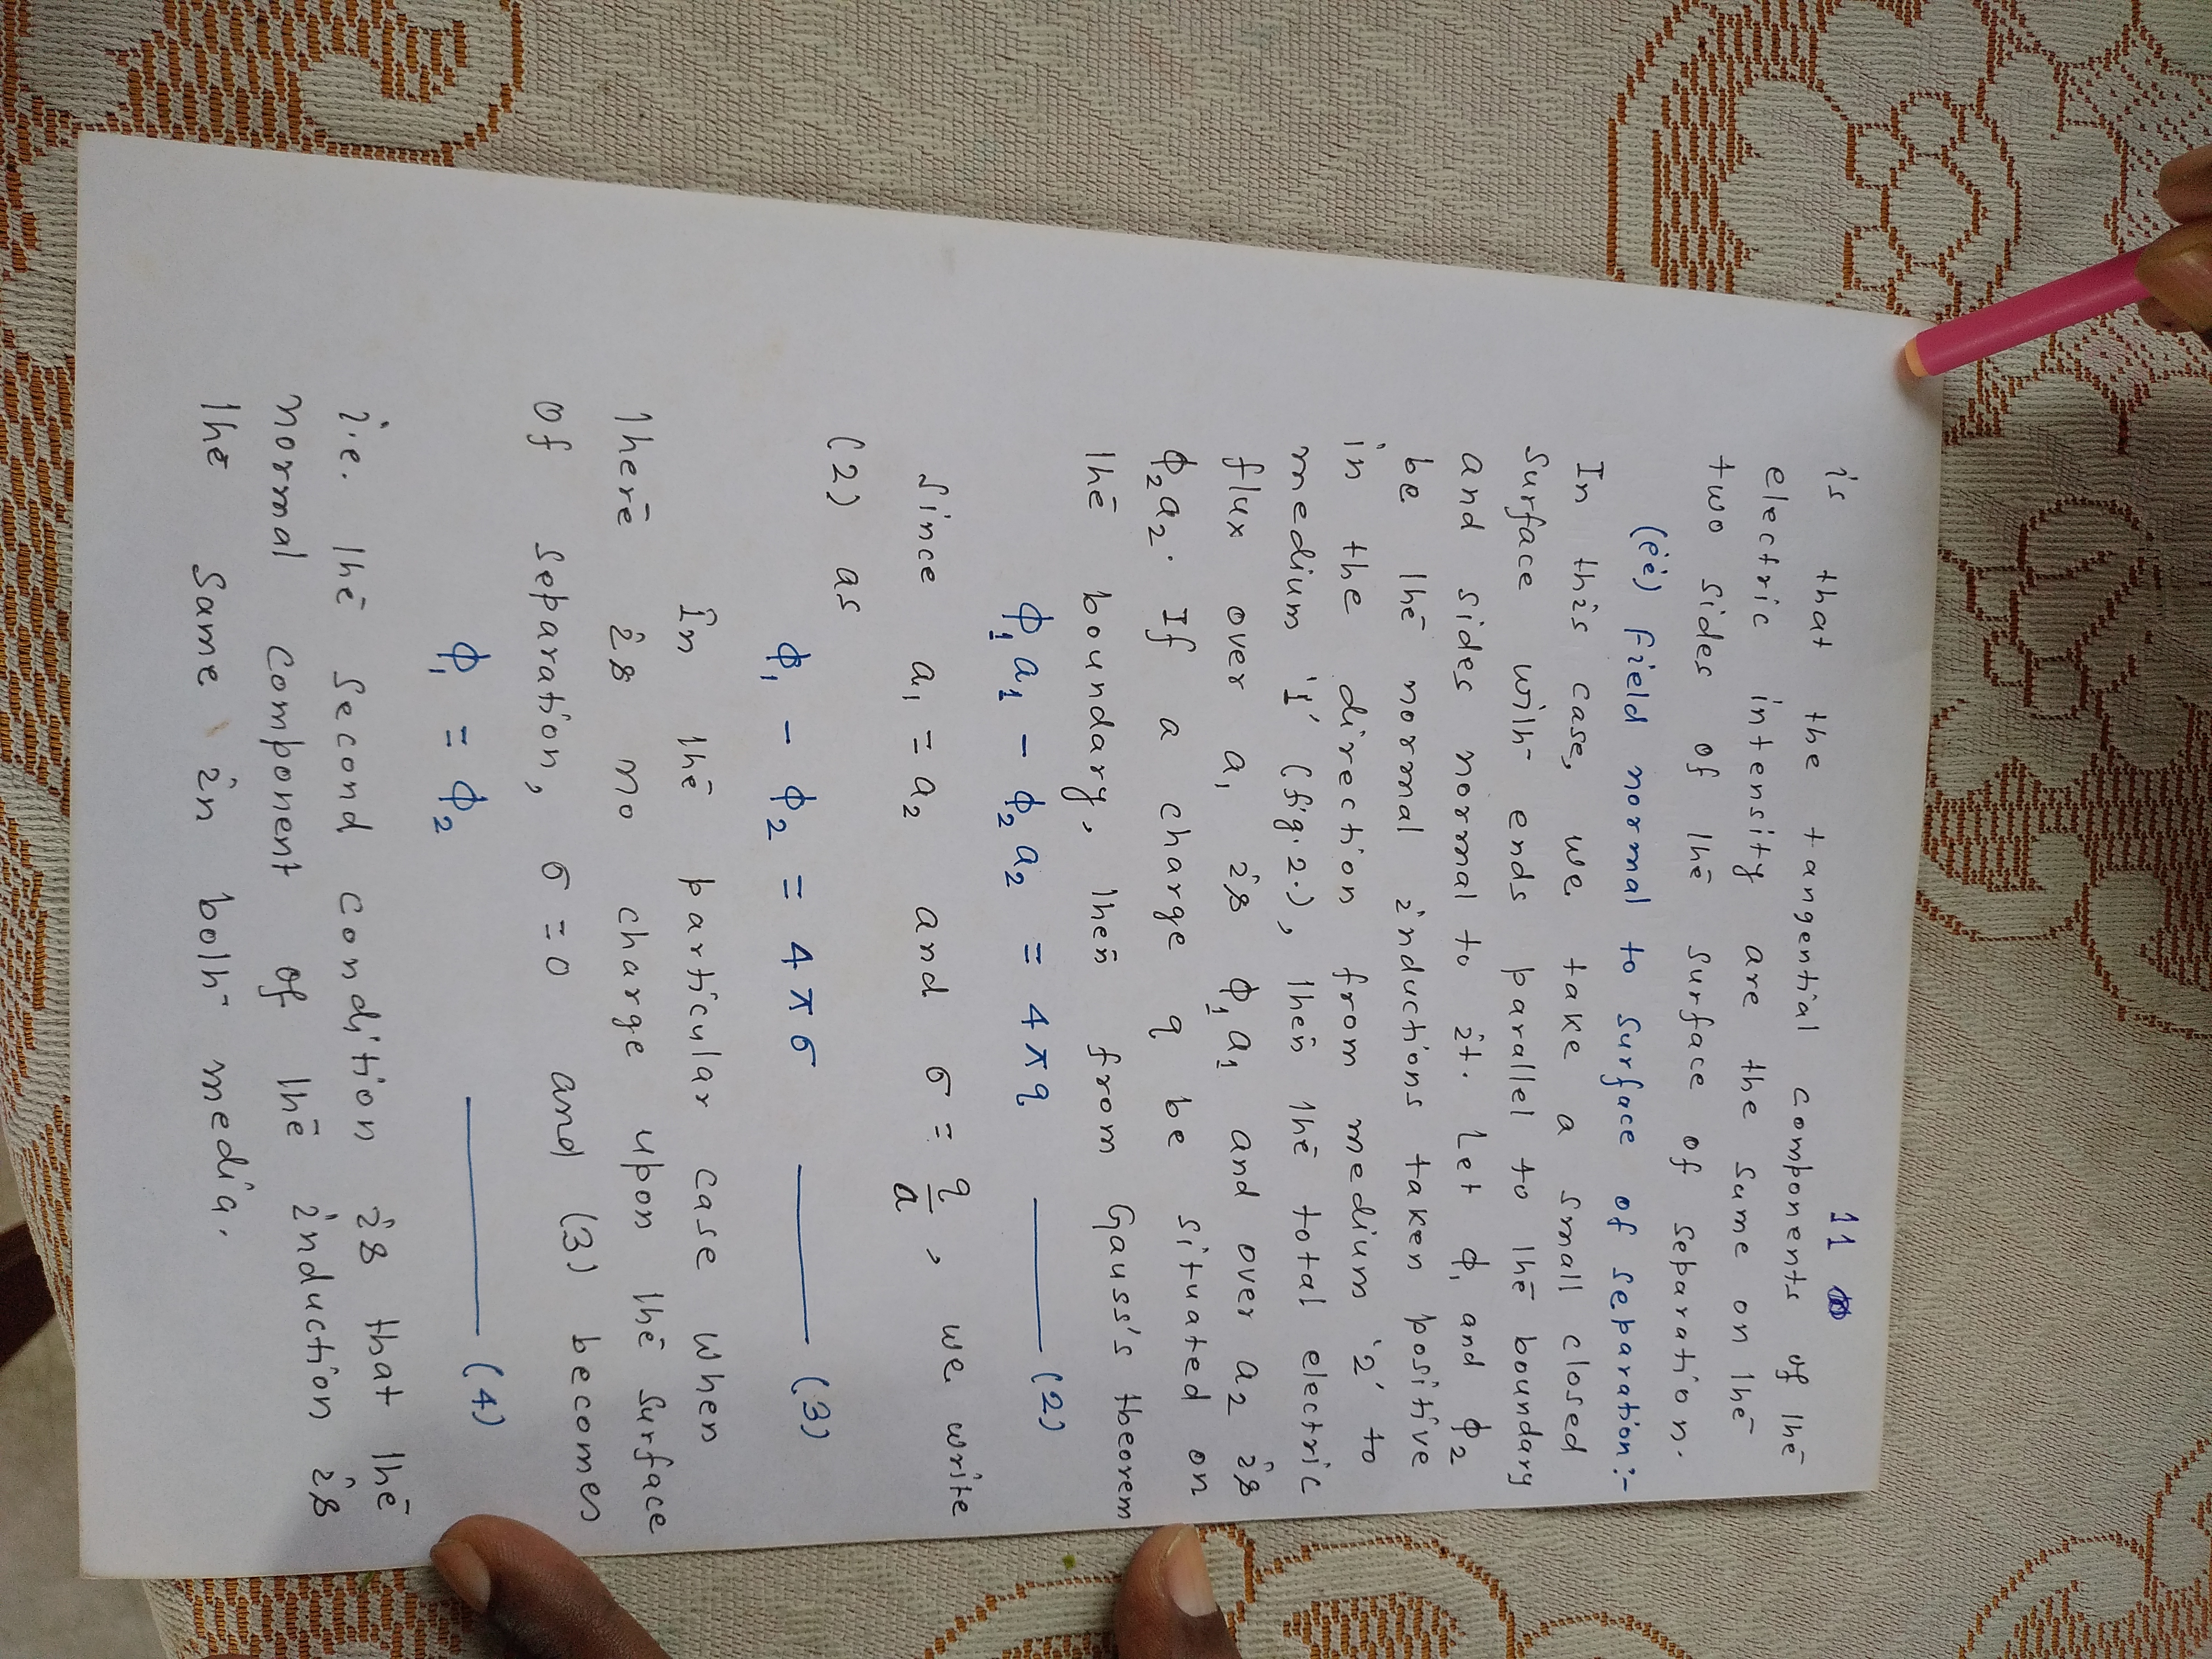 11
is that the tangential components of the
electric intensity are the same on the
two sides of the surface of separation.
(ii) Field normal to surface of separation:-
In this case, we take a small closed
surface with ends parallel to the boundary
and sides normal to it. Let ϕ₁ and ϕ₂
be the normal inductions taken positive
in the direction from medium '2' to
medium '1' (fig.2.), then the total electric
flux over a₁ is ϕ₁a₁ and over a₂ is
ϕ₂a₂. If a charge q be situated on
the boundary, then from Gauss's theorem
ϕ₁a₁ - ϕ₂a₂ = 4πq ——— (2)
Since a₁ = a₂ and σ = q/a, we write
(2) as
ϕ₁ - ϕ₂ = 4πσ ——— (3)
In the particular case when
there is no charge upon the surface
of separation, σ = 0 and (3) becomes
ϕ₁ = ϕ₂ ——— (4)
i.e. the second condition is that the
normal component of the induction is
the same in both media.